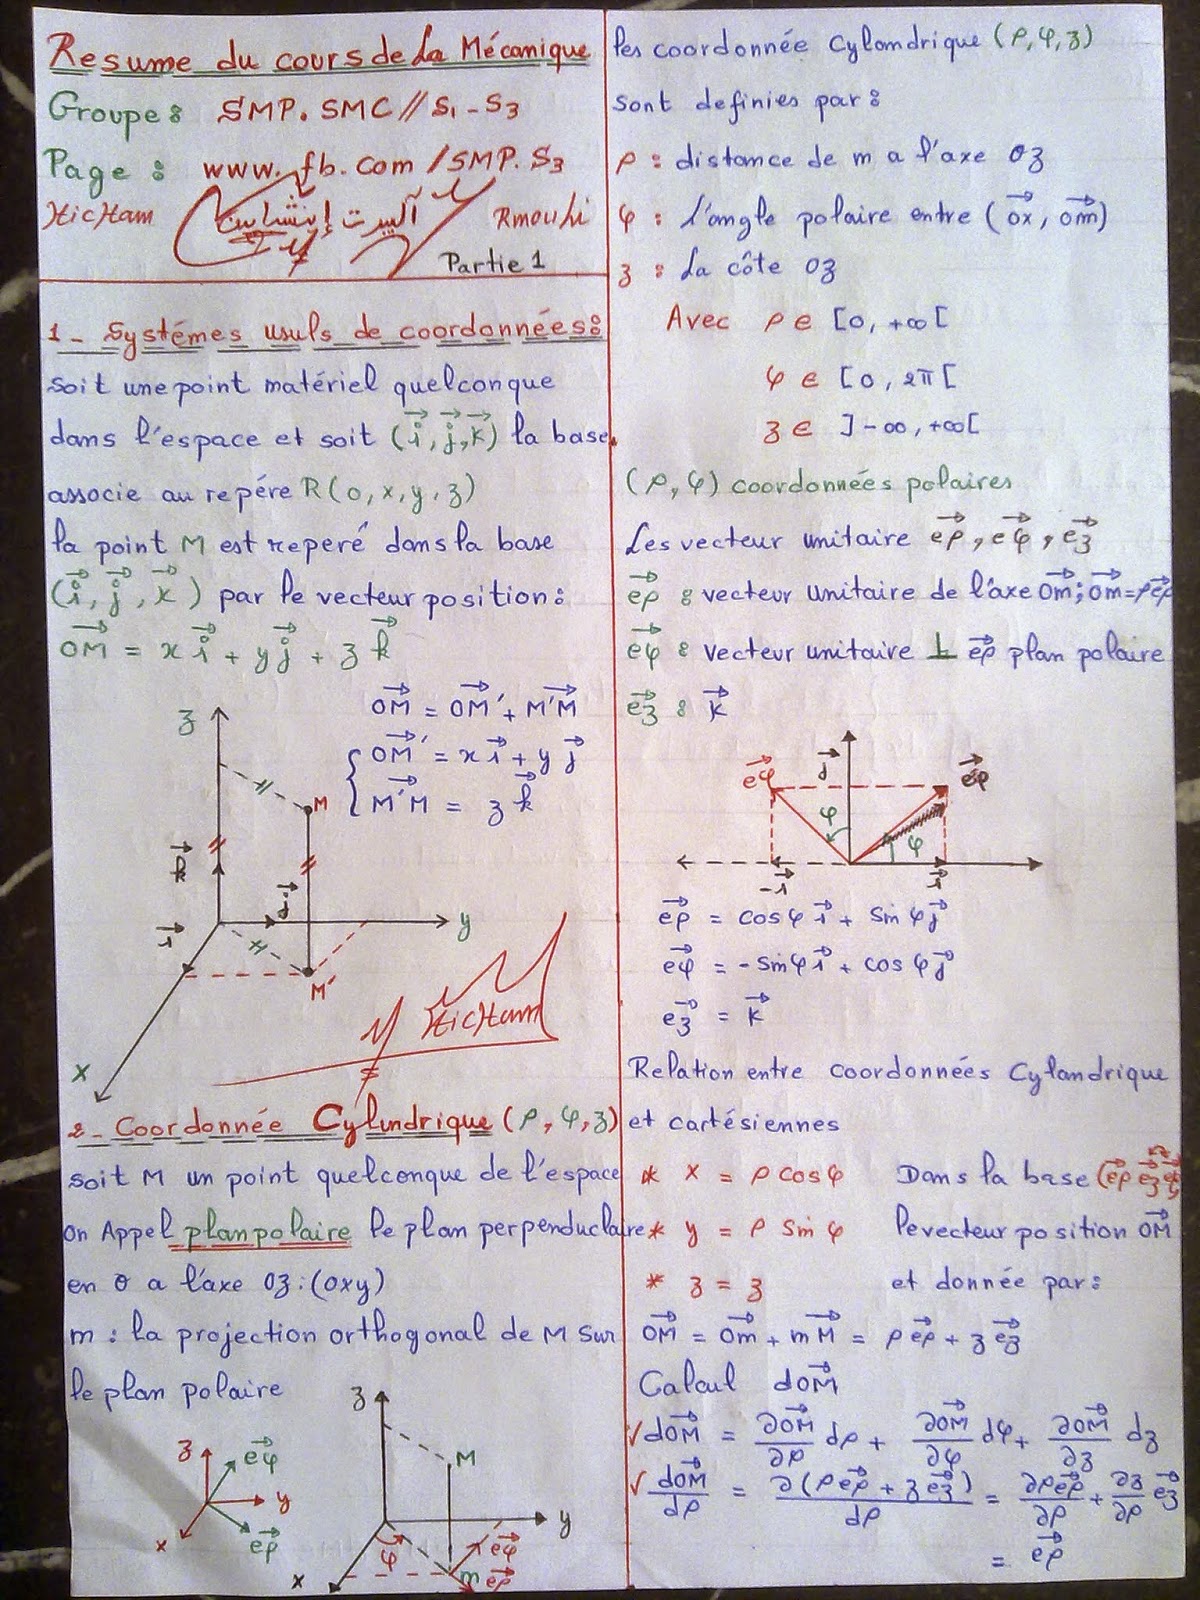 Resume du cours de La Mécanique
Groupe : SMP. SMC // S1 - S3
Page : www. fb. com / SMP. S3
HicHam ألبيرت إينشتاين Rmouhi
Partie 1
1 - Systémes usuls de coordonnées :
soit une point matériel quelconque
dans l'espace et soit (i⃗, j⃗, k⃗) la base.
associe au repére R(o, x, y, z)
la point M est reperé dans la base
(i⃗, j⃗, k⃗) par le vecteur position :
OM⃗ = x i⃗ + y j⃗ + z k⃗
OM⃗ = OM⃗' + M'M⃗
OM⃗' = x i⃗ + y j⃗
M'M⃗ = z k⃗
z
M
k⃗
j⃗
i⃗
y
M'
x
HicHam
2 - Coordonnée Cylindrique (ρ, φ, z)
soit M un point quelconque de l'espace
on Appel plan polaire le plan perpenduclaire
en O a l'axe Oz : (oxy)
m : la projection orthogonal de M sur
le plan polaire
z
eφ⃗
y
x
eρ⃗
z
M
y
φ
eφ⃗
x
m
eρ⃗
les coordonnée Cylandrique (ρ, φ, z)
sont definies par :
ρ : distance de m a l'axe Oz
φ : l'angle polaire entre (ox⃗, om⃗)
z : La côte Oz
Avec ρ ∈ [0, +∞[
φ ∈ [0, 2π[
z ∈ ]-∞, +∞[
(ρ, φ) coordonnées polaires
Les vecteur unitaire eρ⃗, eφ⃗, ez⃗
eρ⃗ : vecteur unitaire de l'axe Om⃗; Om⃗ = ρeρ⃗
eφ⃗ : vecteur unitaire ⊥ eρ⃗ plan polaire
ez⃗ : k⃗
eφ⃗
j⃗
φ
φ
-i⃗
i⃗
eρ⃗ = cosφ i⃗ + sinφ j⃗
eφ⃗ = -sinφ i⃗ + cosφ j⃗
ez⃗ = k⃗
Relation entre coordonnées Cylandrique
et cartésiennes
* x = ρ cosφ
* y = ρ sinφ
* z = z
Dans la base (eρ⃗ ez⃗ eφ⃗)
le vecteur position OM⃗
et donnée par :
OM⃗ = Om⃗ + mM⃗ = ρ eρ⃗ + z ez⃗
Calcul dOM⃗
√ dOM⃗ = ∂OM⃗/∂ρ dρ + ∂OM⃗/∂φ dφ + ∂OM⃗/∂z dz
√ dOM⃗/dρ = ∂(ρ eρ⃗ + z ez⃗)/dρ = ∂ρeρ⃗/∂ρ + ∂z/∂ρ ez⃗
= eρ⃗